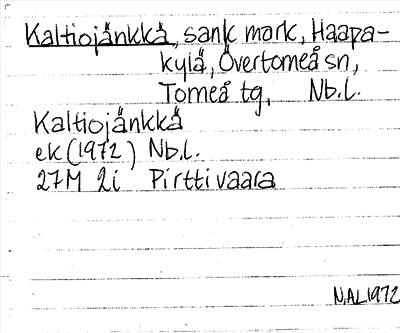 Kaltiojänkkä, sank mark, Haapa-
kylä, Övertorneå sn,
Torneå tg, Nb.l.
Kaltiojänkkä
ek (1972) Nb.l.
27M 2i Pirttivaara
N.AL1972